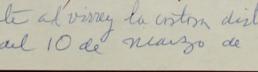 te al virrey la costosa dist
del 10 de marzo de